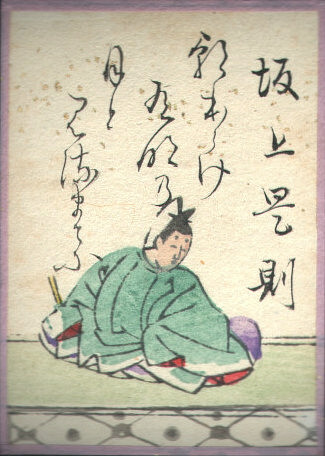 坂上是則
朝ほらけ
有明乃
月と
みるまてに